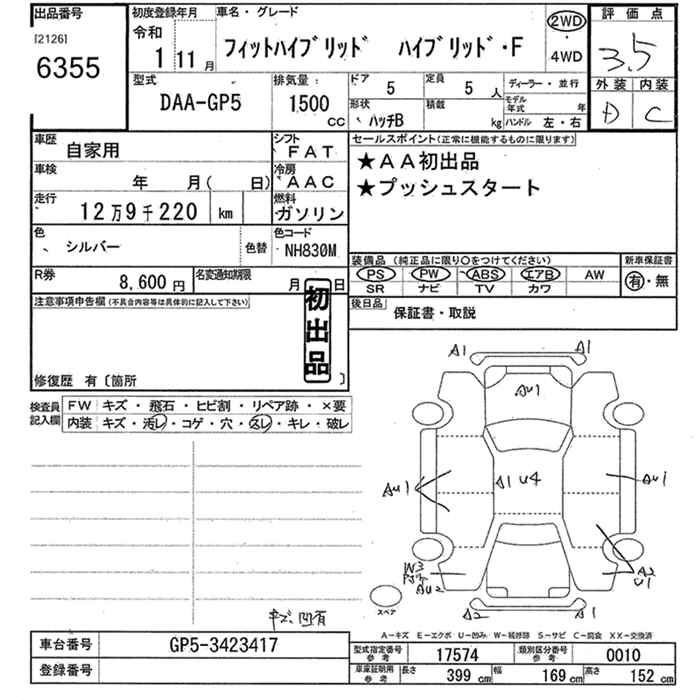 出品番号
[2126]
6355
初度登録年月
令和
1 11 月
車名・グレード
フィットハイブリッド ハイブリッド・F
2WD
4WD
評価点
3.5
外装 内装
D C
型式
DAA-GP5
排気量
1500
cc
ドア 5
定員 5 人
形状
ハッチB
積載 kg
ディーラー・並行
モデル年式 年
ハンドル 左・右
車歴
自家用
シフト
FAT
車検
年 月( 日)
冷房
AAC
走行
12万9千220 km
燃料
ガソリン
色
シルバー
色替
色コード
NH830M
R券
8,600 円
名変通知期限
月 日
セールスポイント(正常に機能するものに限ります)
★AA初出品
★プッシュスタート
装備品(純正品に限り○をつけてください)
PS PW ABS エアB AW
SR ナビ TV カワ
新車保証書
有・無
後日品
保証書・取説
注意事項申告欄(不具合内容等は具体的に記入して下さい)
初出品
修復歴 有〔箇所 〕
検査員記入欄
FW キズ・飛石・ヒビ割・リペア跡・×要
内装 キズ・汚レ・コゲ・穴・スレ・キレ・破レ
A1 A1
Au1
Au1
A1 U4
Au1
W3
Au2
A2
U1
スペア
A2 A1
キズ、凹有
A-キズ E-エクボ U-凹み W-補修跡 S-サビ C-腐食 XX-交換済
車台番号
GP5-3423417
登録番号
型式指定番号
参考
17574
類別区分番号
参考
0010
車庫証明用
参考
長さ 399 cm 幅 169 cm 高さ 152 cm